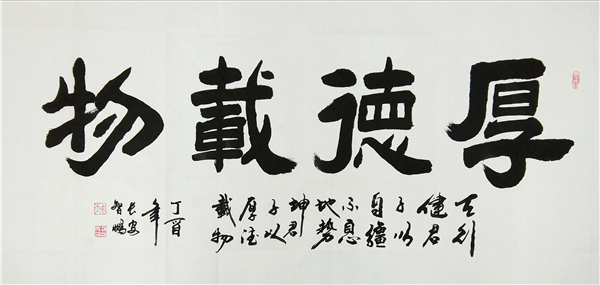 厚德載物
天行
健君
子以
自疆
不息
地勢
坤君
子以
厚德
載物
丁酉
年
長安
智鵬